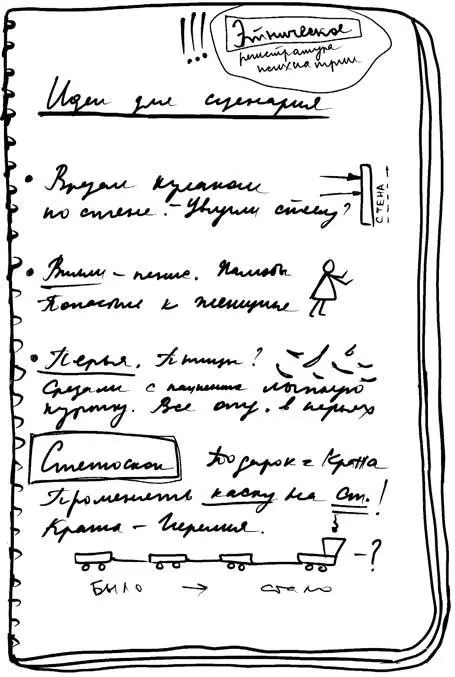 !!! Этническое
регистратура
психиатрии
Идеи для сценария
• Врезали кулаком
по стене. – Увезли стену?
СТЕНА
• Вилли – пение. Жалобы
Попасть к женщине
• Перья. Птицы?
Срезали с пациента лыжную
куртку. Все опу. в перьях
Стетоскоп Подарок = Крота
Променять каску на ст.!
Крота – Иеремия.
– ?
БЫЛО → стало